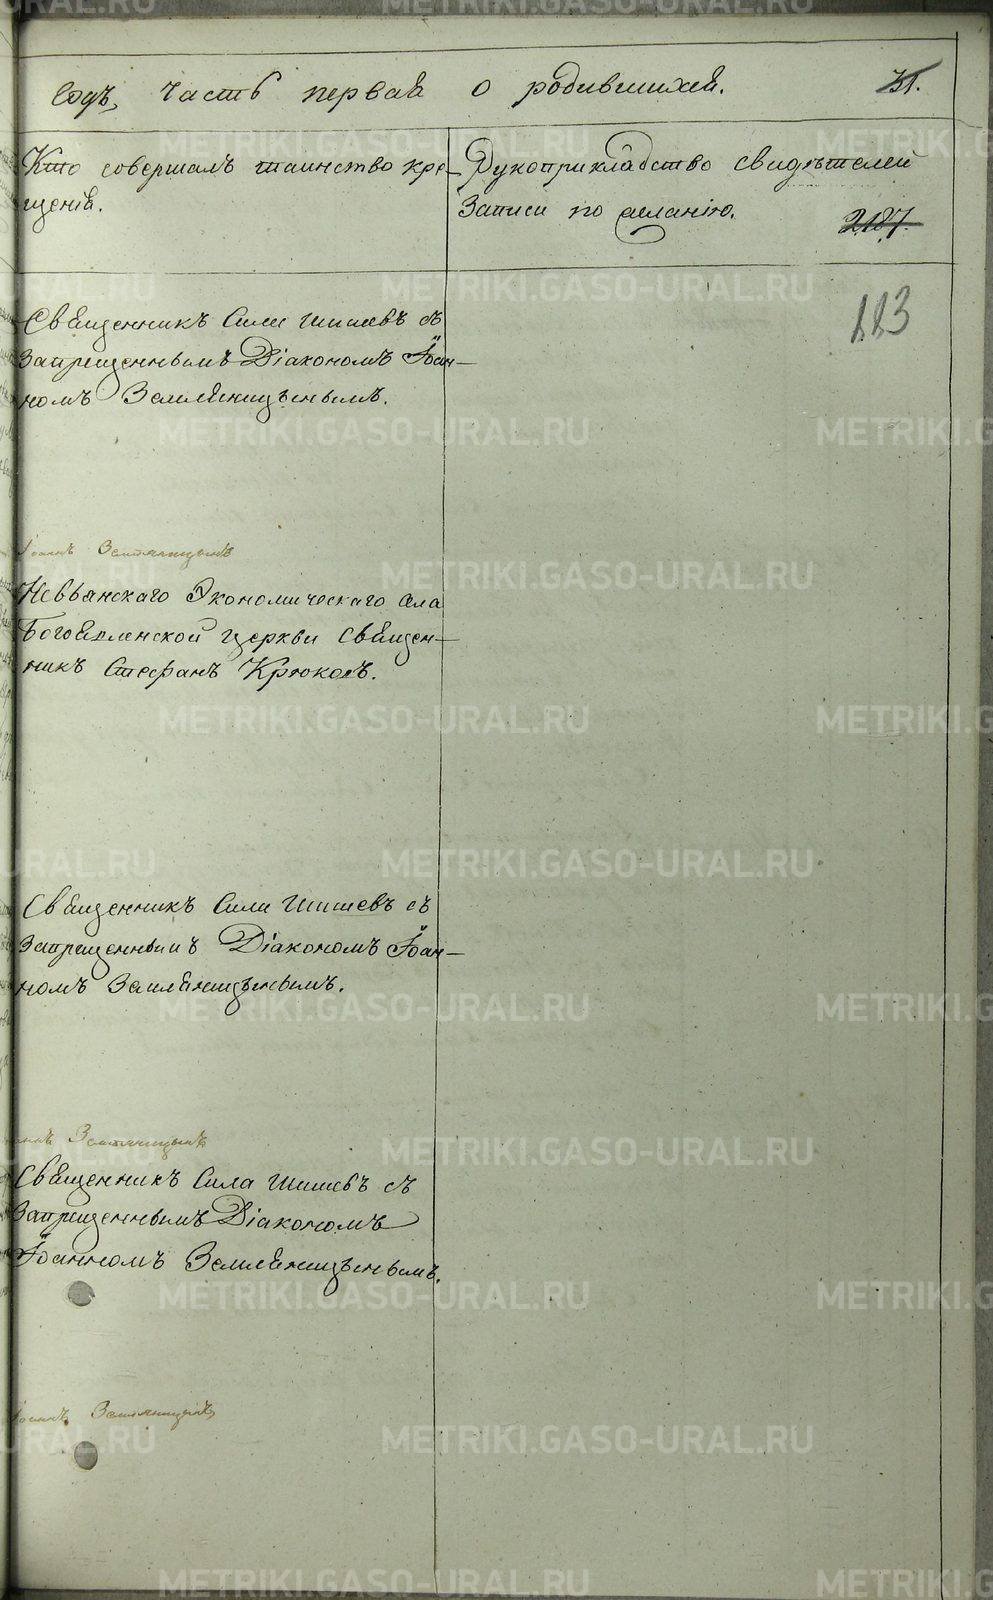 Годъ, часть первая о родившихся. 31.
Кто совершалъ таинство кре-
щенія.
Рукоприкладство свидѣтелей
Записи по желанію.
2187.
113
Священникъ Сила Шишевъ съ
Запрещеннымъ Діакономъ Іоан-
номъ Земляницынымъ.
Іоаннъ Земляницынъ
Невьянскаго Экономическаго села
Богоявленской церкви Священ-
никъ Стефанъ Крюковъ.
Священникъ Сила Шишевъ съ
Запрещеннымъ Діакономъ Іоан-
номъ Земляницынымъ.
Земляницынъ
Священникъ Сила Шишевъ съ
Запрещеннымъ Діакономъ
Іоанномъ Земляницынымъ.
Іоаннъ Земляницынъ
METRIKI.GASO-URAL.RU